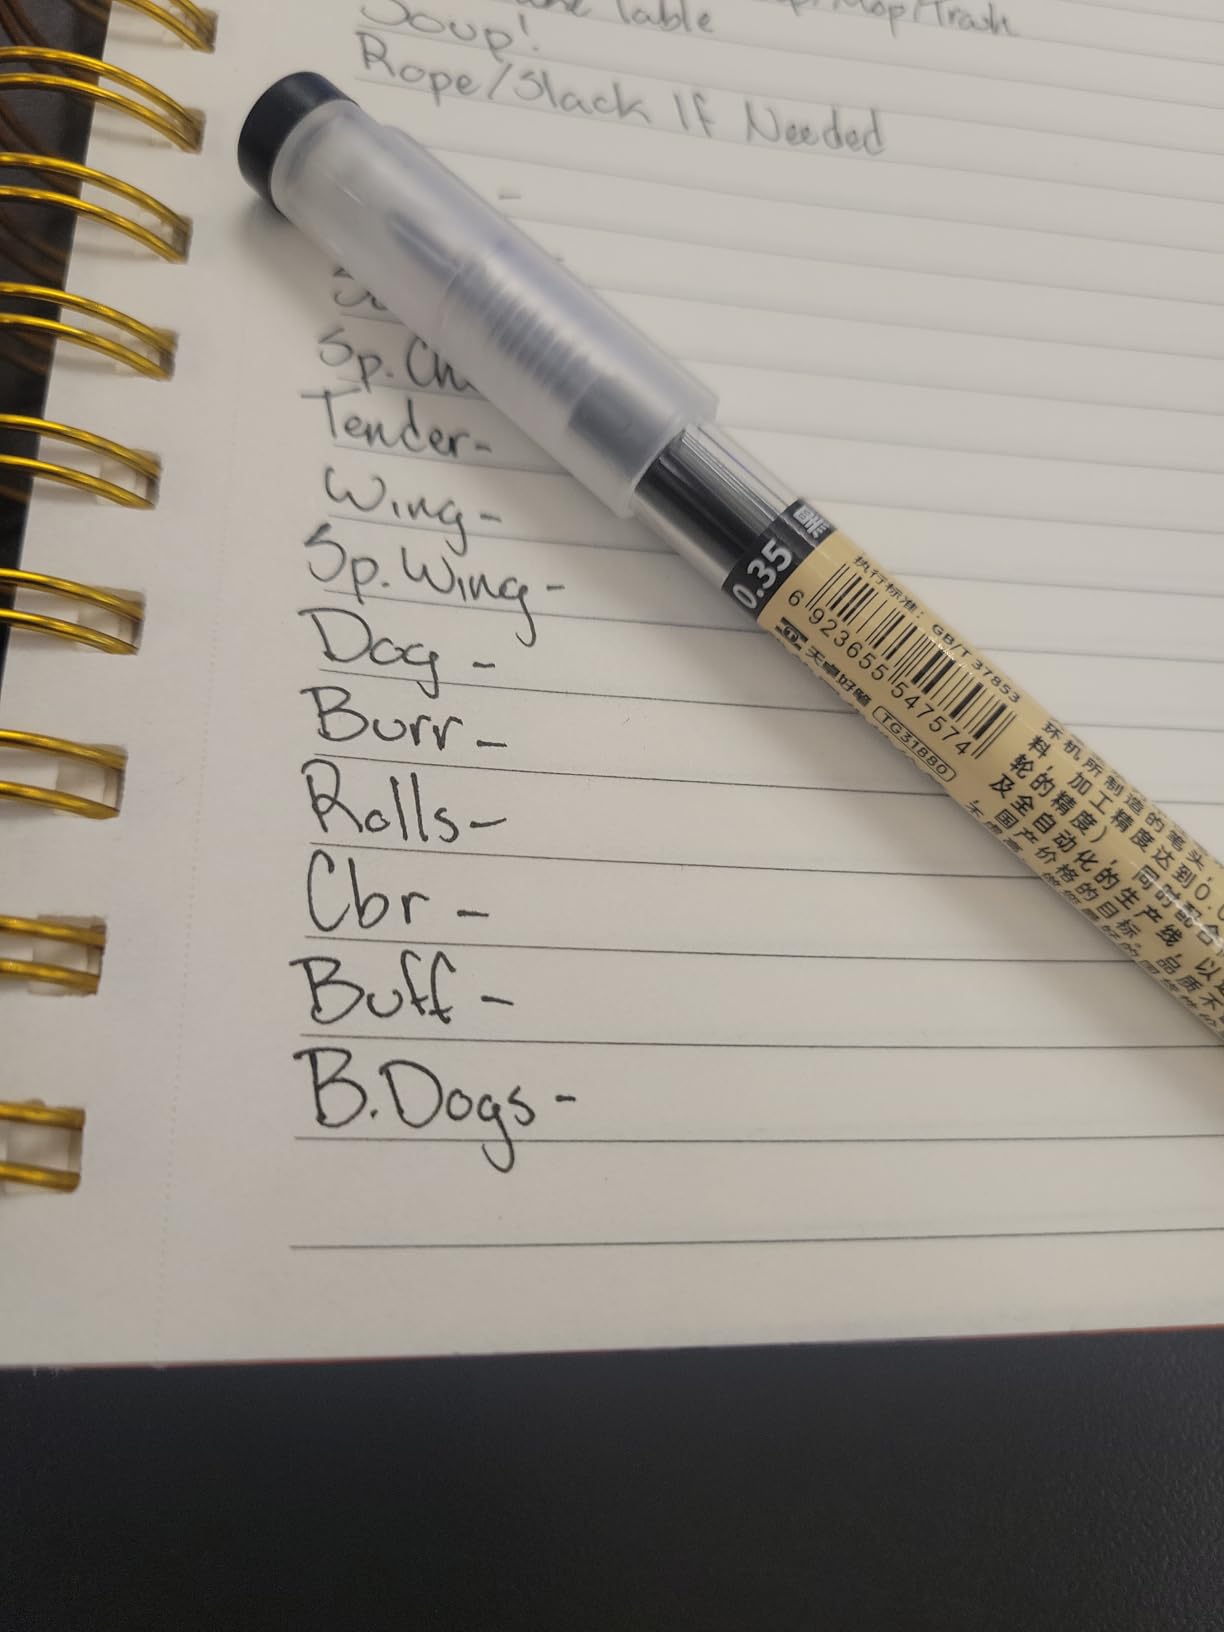 Table
/Mop/Trash
Soup!
Rope/Slack If Needed
-
Sp. Ch
Tender-
Wing-
Sp. Wing-
Dog -
Burr-
Rolls-
Cbr -
Buff -
B.Dogs-
0.35
执行标准: GB/T 37853
6 923655 547574
天卓好笔
TG31880
环机所制造的笔头,
料,加工精度达到0.0
轮的精度),同时配合
及全自动化的生产线,以
国产价格的目标,品质不